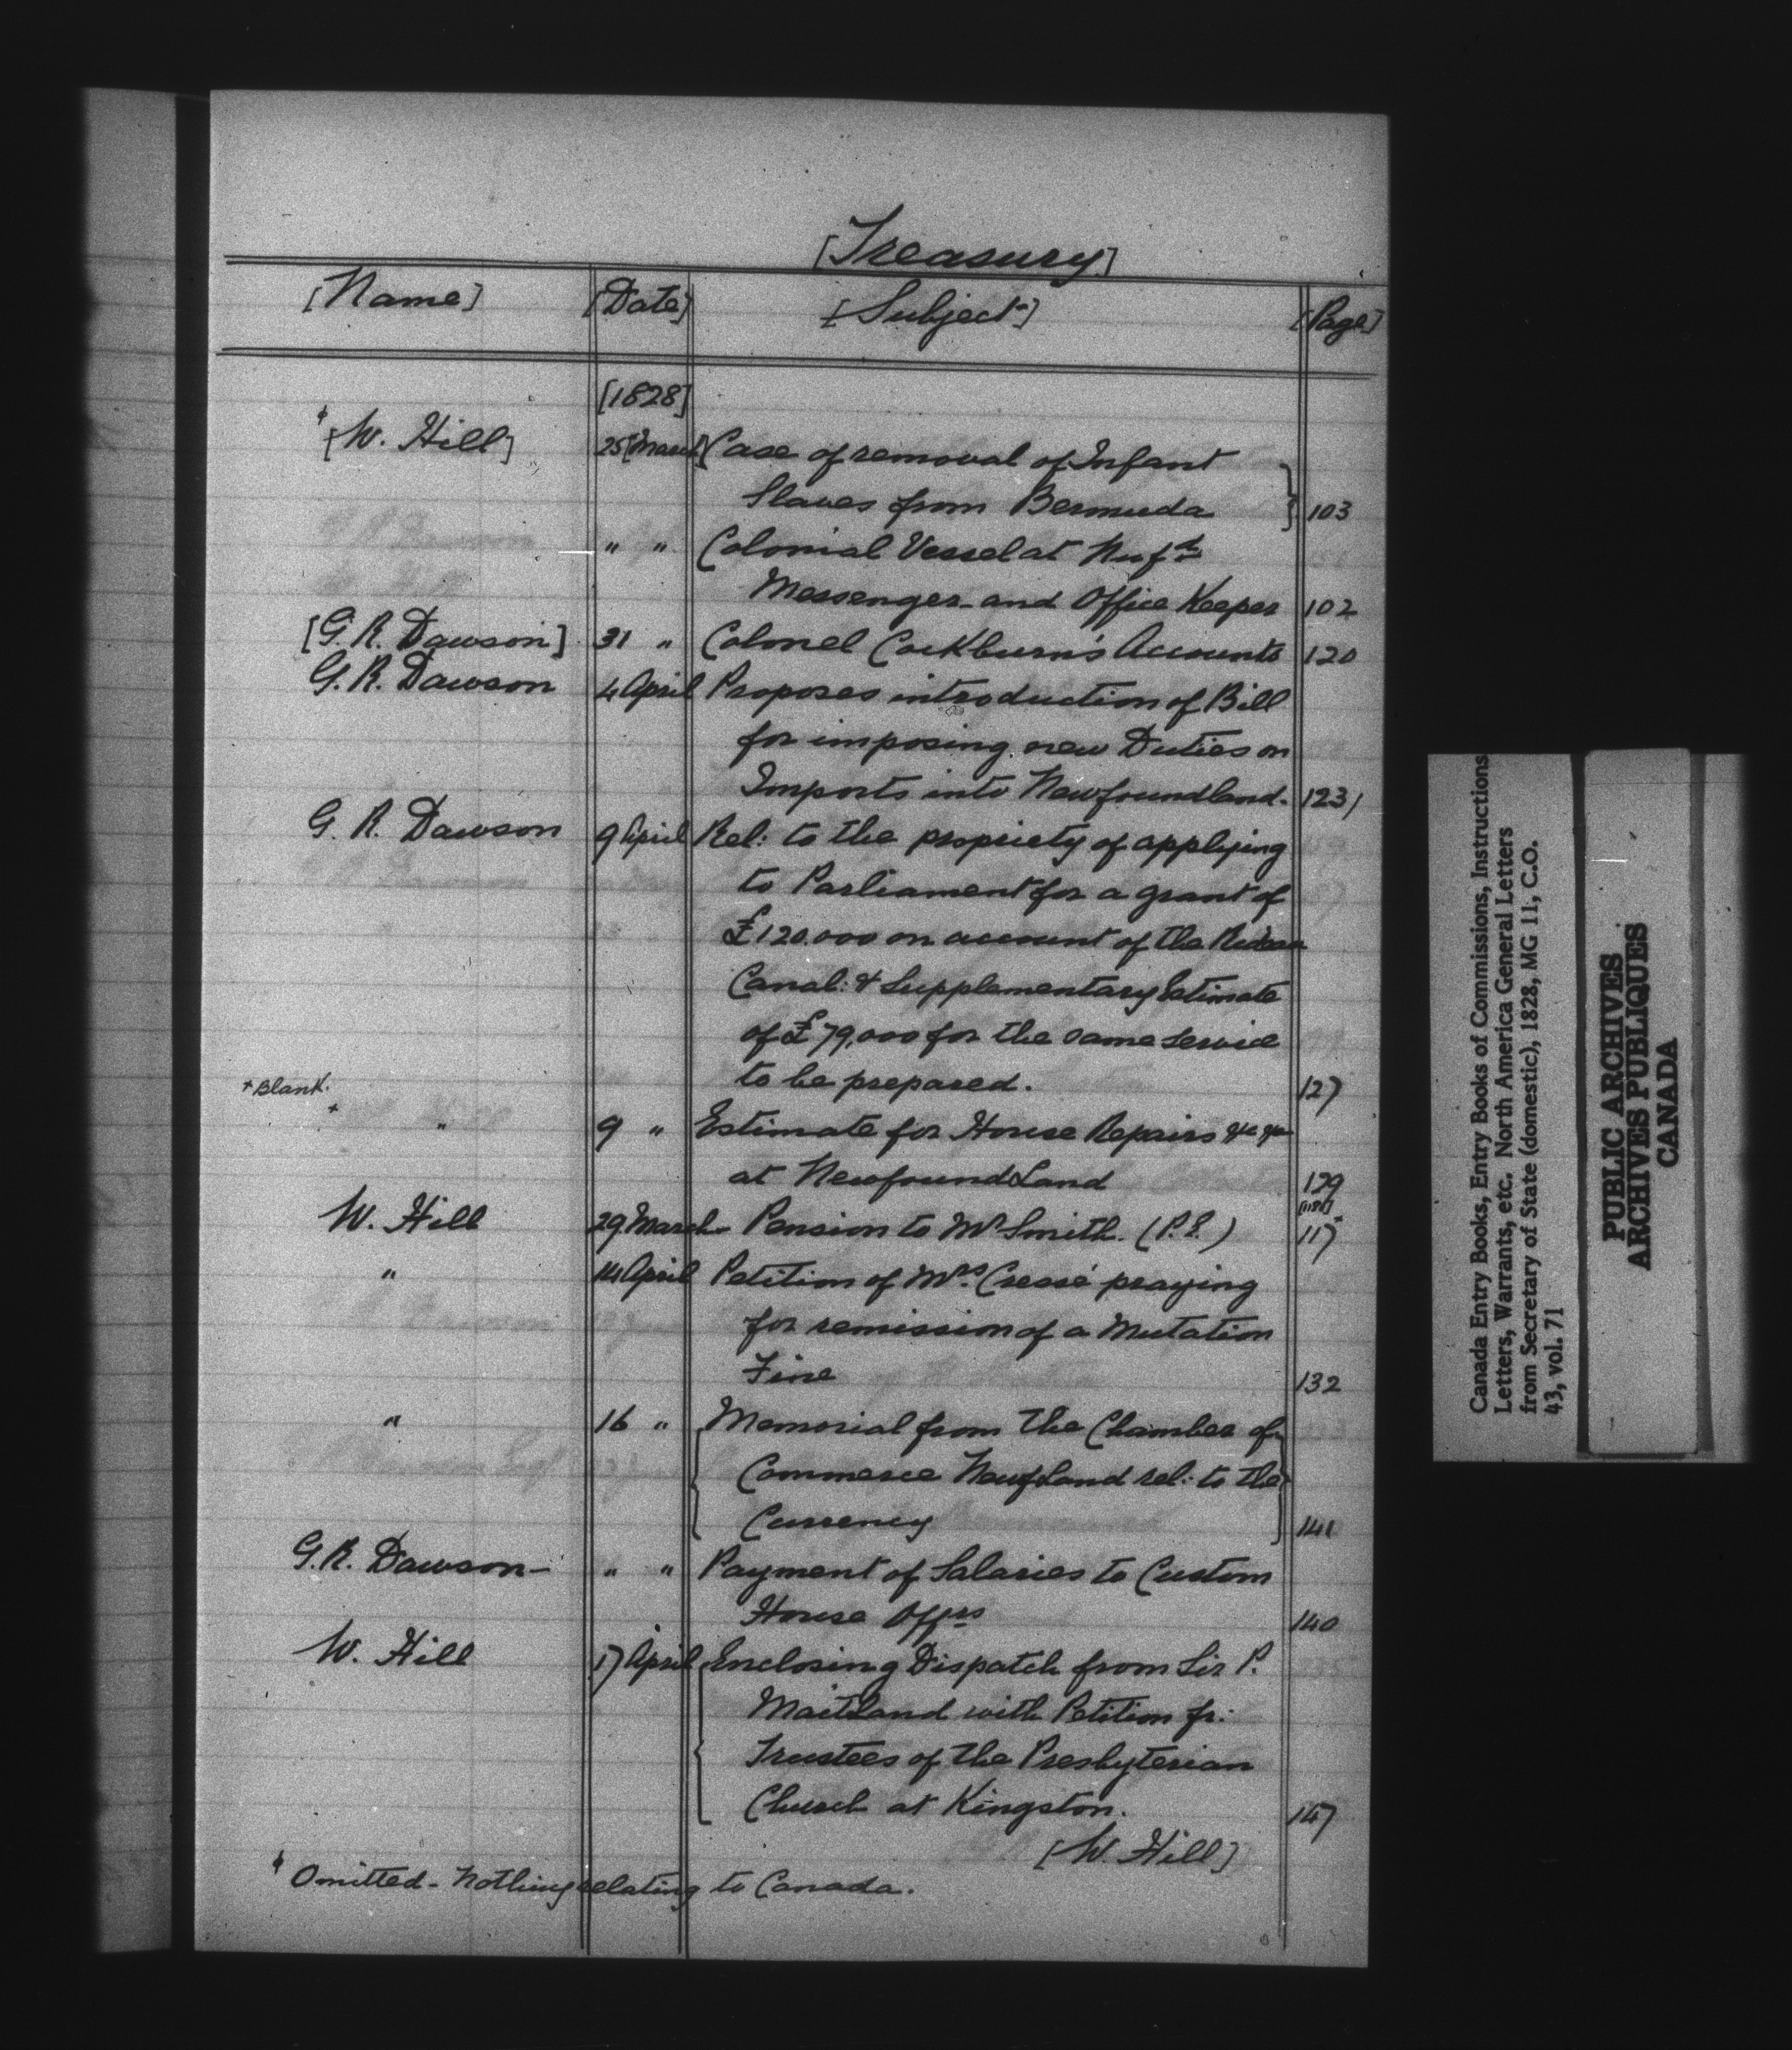 [Treasury]
[Name] [Date] [Subject] [Page]
[1828]
[W. Hill] 25 [March] [Case of removal of Infant
Slaves from Bermuda } 103
" " Colonial Vessel at Nufd
Messenger and Office Keeper 102
[G. R. Dawson] 31 " Colonel Cockburn's Accounts 120
G. R. Dawson 4 April Proposes introduction of Bill
for imposing new Duties on
Imports into Newfoundland. 123
G. R. Dawson 9 April Rel: to the propriety of applying
to Parliament for a grant of
£120.000 on account of the Rideau
Canal: & Supplementary Estimate
of £79,000 for the same service
to be prepared. 127
+ Blank.
+ " 9 " Estimate for House Repairs &c &c
at NewfoundLand 129
W. Hill 29 March - Pension to Mr Smith. (P.E.) 117
" 14 April Petition of Mrs. Cressé praying
for remission of a Mutation
Fine 132
" 16 " Memorial from the Chamber of
Commerce NewfLand rel: to the
Currency 141
G. R. Dawson - " " Payment of Salaries to Custom
House Offrs 140
W. Hill 17 April Enclosing Dispatch from Sir P.
Maitland with Petition fr:
Trustees of the Presbyterian
Church at Kingston. 147
[W. Hill]
Omitted - Nothing relating to Canada.
Canada Entry Books, Entry Books of Commissions, Instructions
Letters, Warrants, etc. North America General Letters
from Secretary of State (domestic), 1828, MG 11, C.O.
43, vol. 71
PUBLIC ARCHIVES
ARCHIVES PUBLIQUES
CANADA